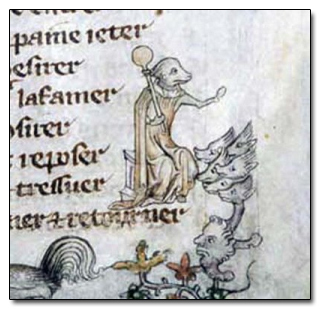 pame ieter
esirer
lafamer
osirer
reposer
tressuer
uer & retourner